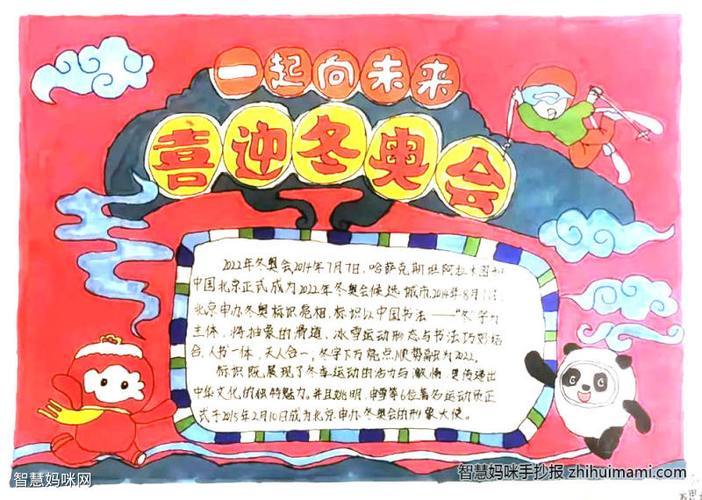 一起向未来
喜迎冬奥会
2022年冬奥会2014年7月7日,哈萨克斯坦阿拉木图和
中国北京正式成为2022年冬奥会候选城市,2014年8月1日,
北京申办冬奥标识亮相,标识以中国书法——“冬”字为
主体,将抽象的滑道,冰雪运动形态与书法巧妙结
合,人书一体,天人合一,冬字下方两点顺势融为2022。
标识既展现了冬季运动的活力与激情,更传递出
中华文化的独特魅力,并且姚明,申雪等6位著名运动员正
式于2015年2月10日成为北京申办冬奥会的形象大使。
智慧妈咪网
智慧妈咪手抄报 zhihuimami.com